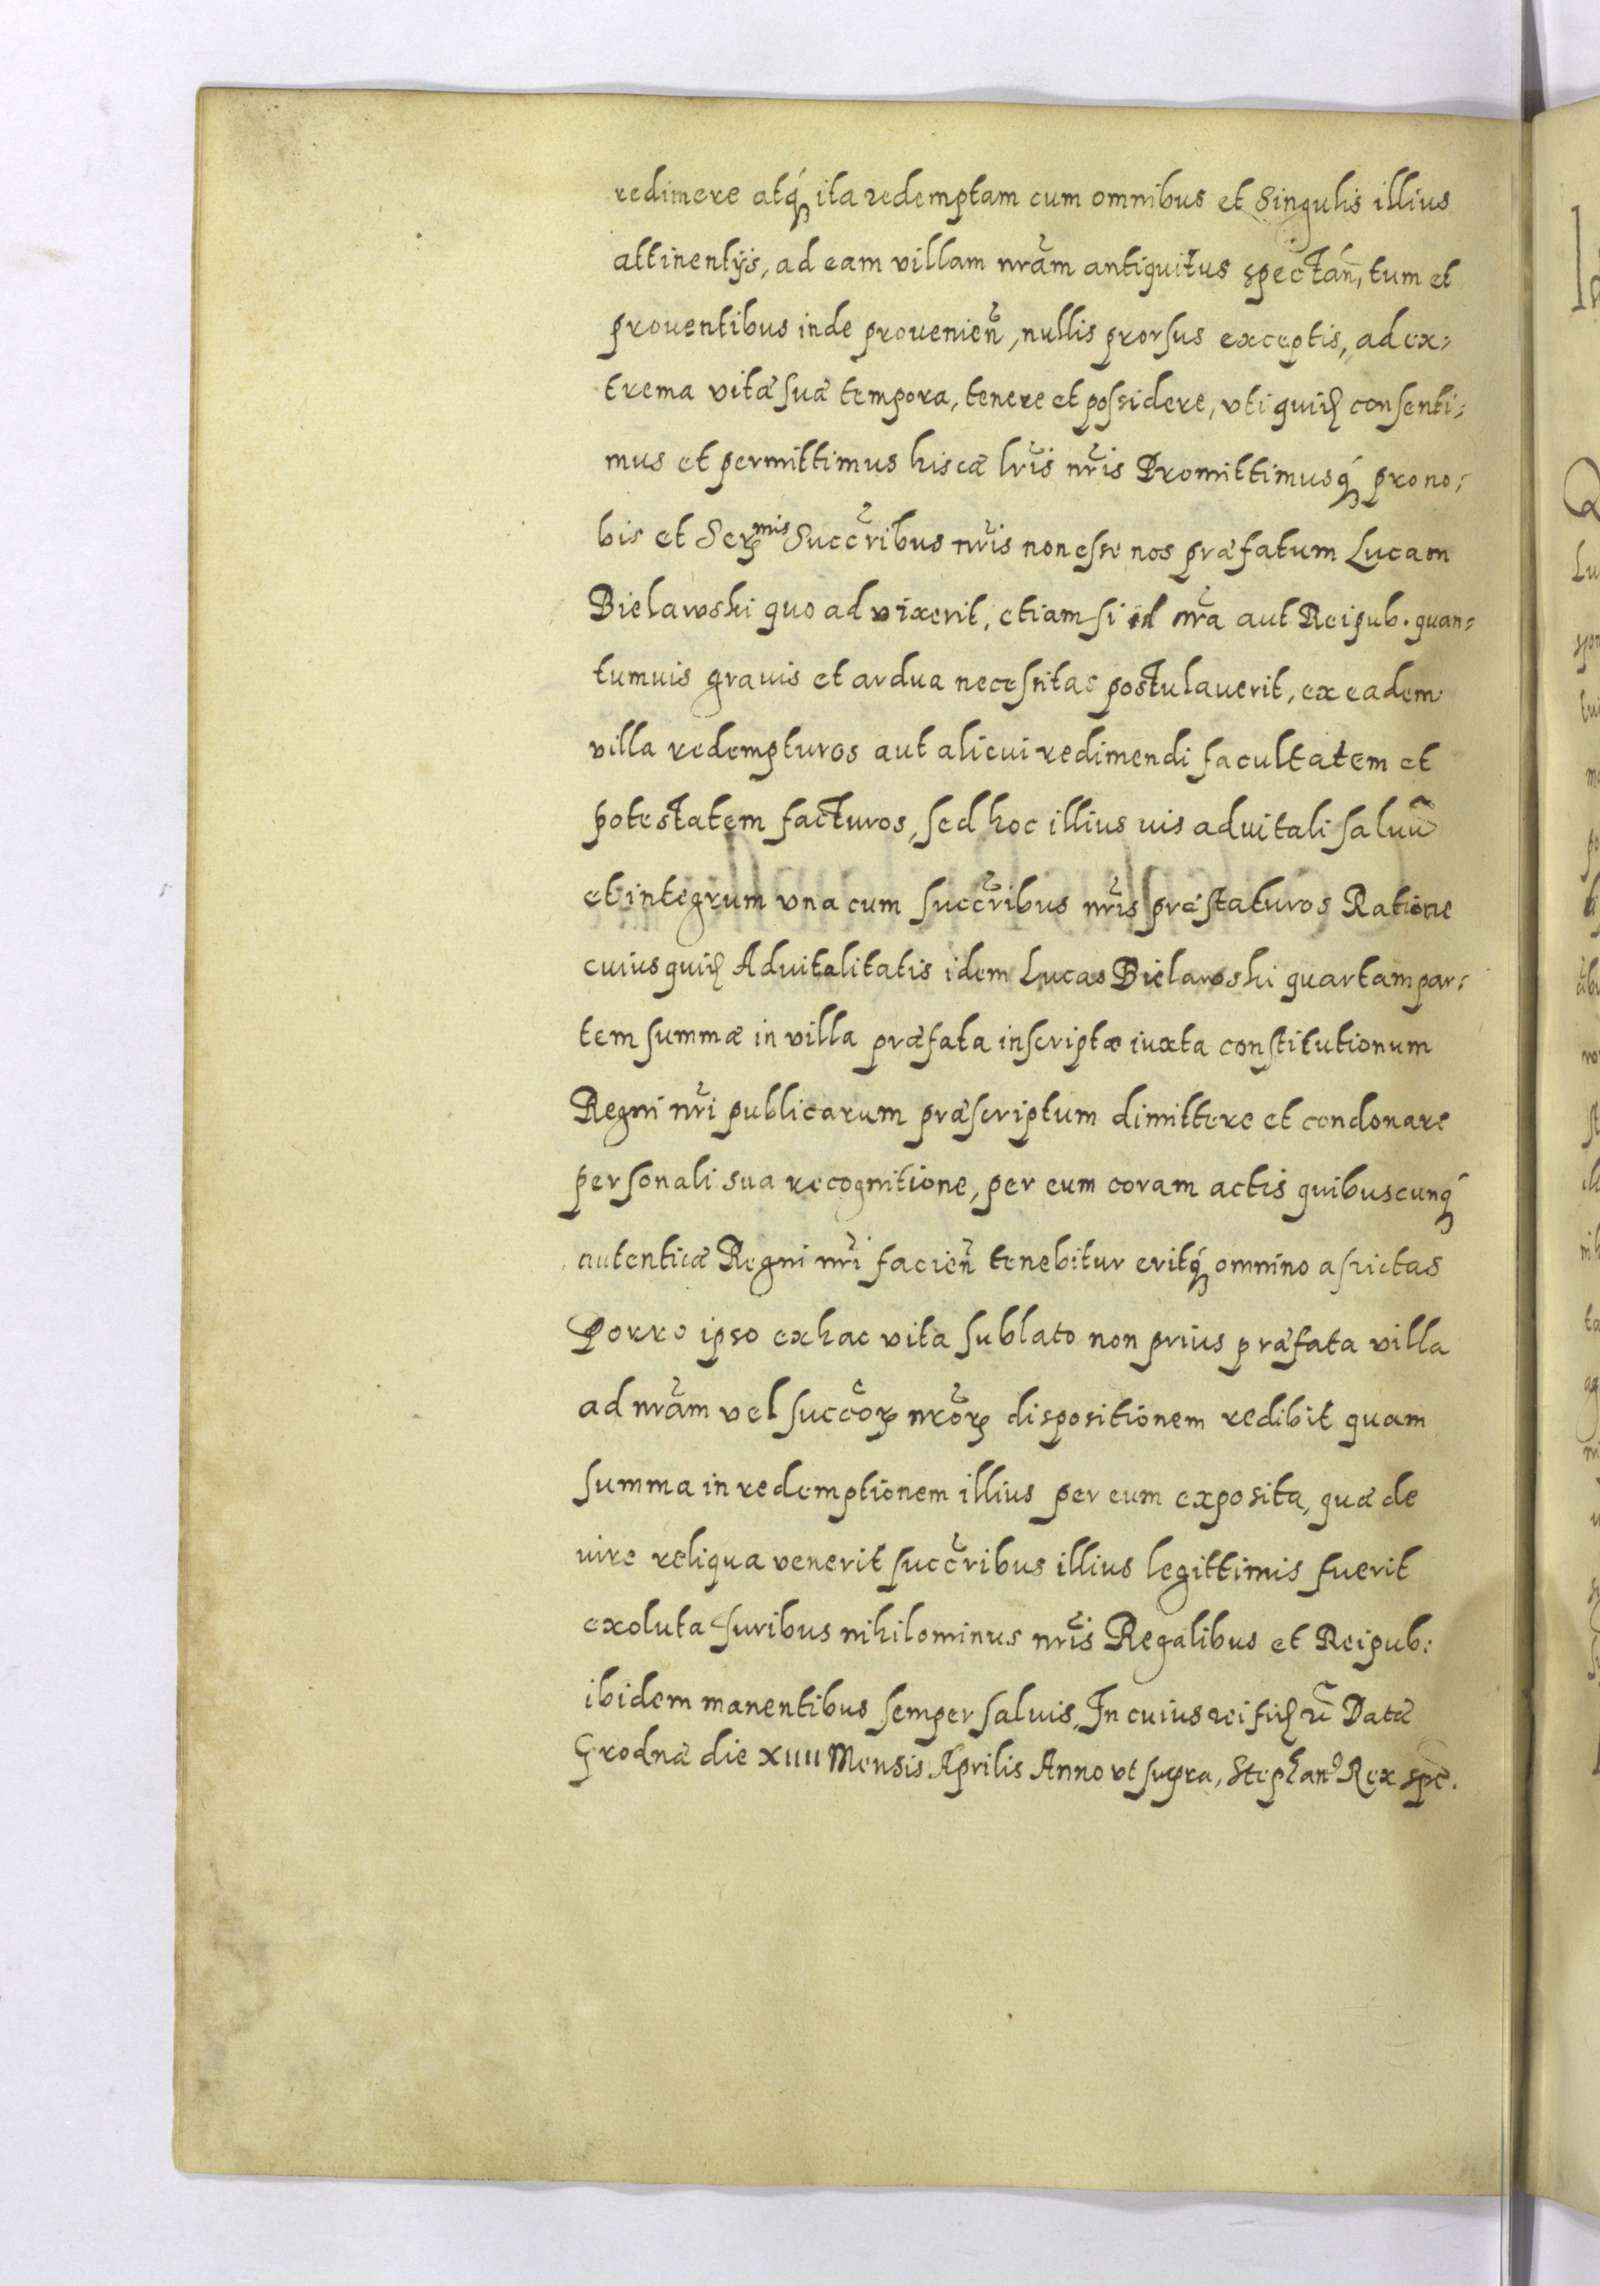 redimere atq́ꝫ ita redemptam cum omnibus et Singulis illius
attinentijs, ad eam villam nrãm antiquitus spectañ, tum et
prouentibus inde prouenieñ, nullis prorsus exceptis, ad ex=
trema vitæ suæ tempora, tenere et possidere, vti quidꝫ consenti=
mus et permittimus hiscæ lrĩs nrĩs Promittimusq́ꝫ pro no=
bis et Serᵐⁱˢ Succr̃ibus nrĩs non esse nos præfatum Lucam
Bielawski quo ad vixerit, etiam si id nrã aut Reipub. quan=
tumuis grauis et ardua necessitas postulauerit, ex eadem
villa redempturos aut alicui redimendi facultatem et
potestatem facturos, sed hoc illius uis aduitali saluũ
et integrum vna cum succr̃ibus nrĩs præstaturos Ratione
cuius quidꝫ Aduitalitatis idem Lucas Bielawski quartam par=
tem summæ in villa præfata inscriptæ iuxta constitutionum
Regni nrĩ publicarum præscriptum dimittere et condonare
personali sua recognitione, per eum coram actis quibuscunq́ꝫ
autenticæ Regni nrĩ facieñ tenebitur eritq́ꝫ omnino astrictas
Porro ipso ex hac vita sublato non prius præfata villa
ad nrãm vel succõꝝ nrõꝝ dispositionem redibit quam
summa in redemptionem illius per eum exposita, quæ de
iure reliqua venerit succr̃ibus illius legittimis fuerit
exoluta Juribus nihilominus nrĩs Regalibus et Reipub:
ibidem manentibus semper saluis, In cuius rei fidꝫ ũ Datæ
Grodnæ die XIIII Mensis Aprilis Anno vt supra, Stephan⁹ Rex spẽ.